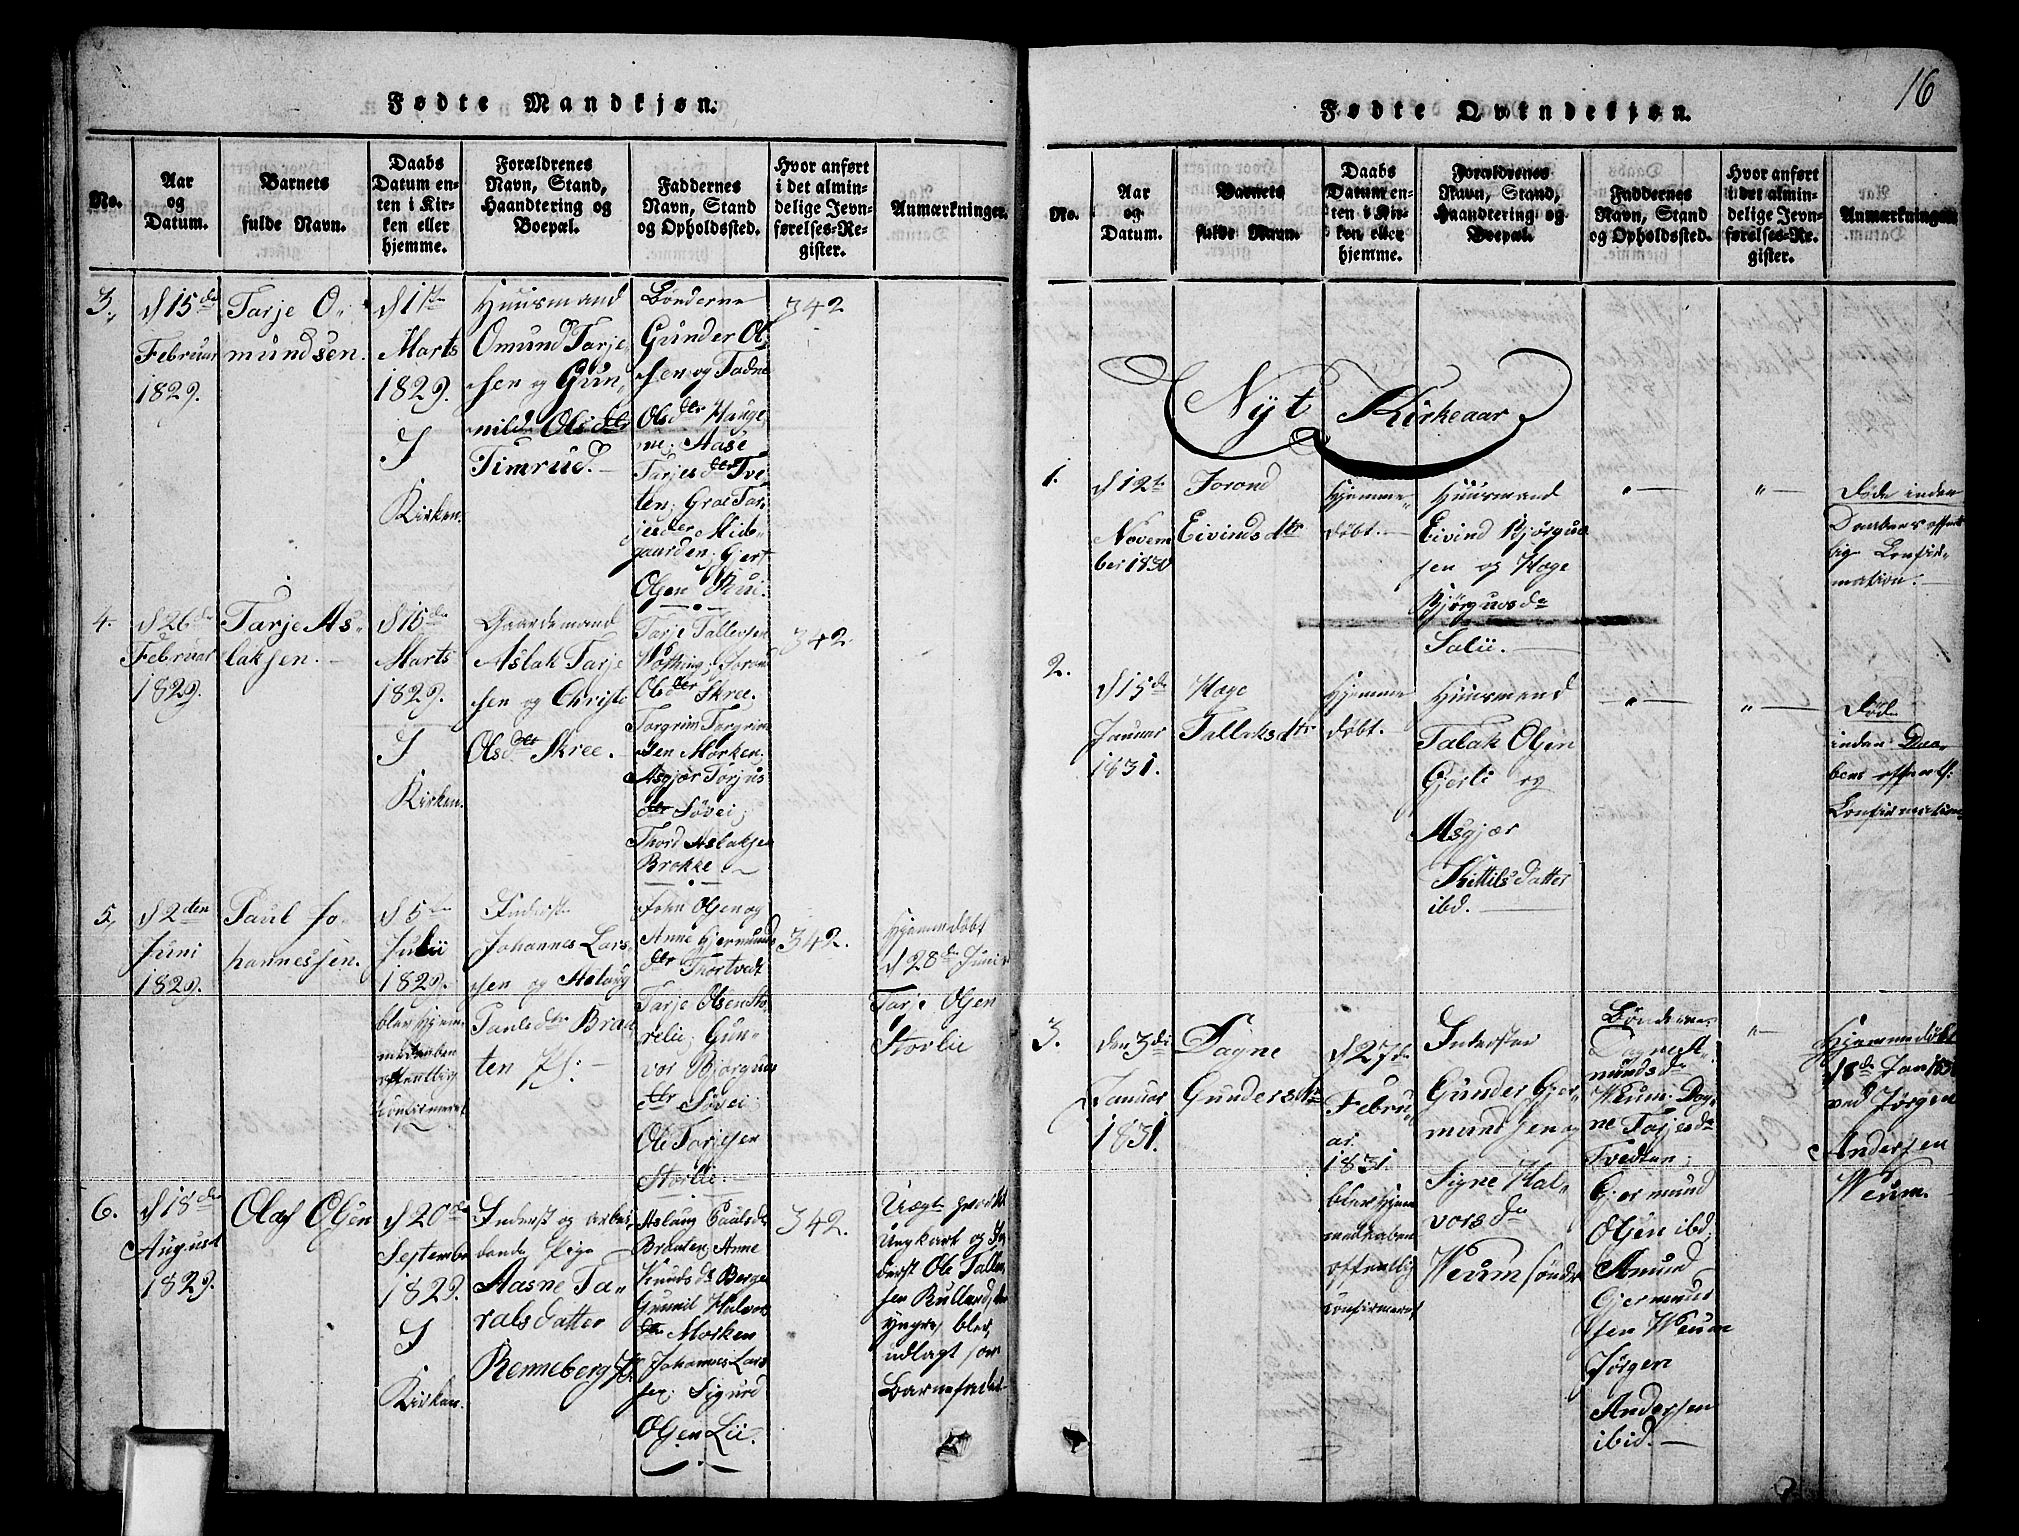 Fødte Mandkjøn.
No.
Aar
og
Datum.
Barnets
fulde Navn.
Daabs
Datum en-
ten i Kir-
ken eller
hjemme.
Forældrenes
Navn, Stand,
Haandtering og
Boepæl.
Faddernes
Navn, Stand
og Opholdssted.
Hvor anført
i det almin-
delige Jevn-
førelses-Re-
gister.
Anmærkninger.
3.
d 15de
Februar
1829.
Tarje O-
mundsen.
d 1ste
Marts
1829.
I
Kirken.
Huusmand
Omund Tarje-
sen og Gun-
nild Olsdtr
Timrud.
Bønderne
Gunder Ol-
sen og Tadne
Olsdtr Hauge-
ne; Aase
Tarjesdtr Tve-
ten; Groe Tar-
jesdtr Mid-
gaarden; Gjert
Olsen Stui.
342
4.
d 26de
Februar
1829.
Tarje As-
laksen.
d 15de
Marts
1829.
I
Kirken.
Gaardemand
Aslak Tarje-
sen og Christi
Olsdtr Skree.
Tarje Tallevsen
Olsdtr Skree.
Torgrim Torgrim-
sen Morken;
Asgjær Torjus-
dtr Søvei;
Thord Aslaksen
Brokke
342.
5.
d 2den
Juni
1829.
Paul Jo-
hannessen.
d 5te
Julii
1829.
blev hjem-
medaaben
offentlig
confirmeret
Inderst
Johannes Lars-
sen og Aslaug
Paulsdtr Braa-
ten Pl:
John Olsen og
Anne Gjermunds-
dtr Thortvedt
Tarje Olsen Sto-
relie; Gun-
vor Bjørguvs-
dtr Søvei;
Ole Tarjesen
Storlie.
342.
Hjemmedøbt
d 28de Juni
Tarje Olsen
Storlie
6.
d 18de
August
1829.
Olaf Olsen
d 20de
September
1829.
I
Kirken.
Inderst og arbei-
dende Pige
Aasne Ta-
raldsdatter
Renneberg Pl
Aslaug Paulsdr
Braaten; Anne
Knudsd. Berge
Gunnil Halvors-
dtr Morken
Johannes Lars-
sen; Sigurd
Olsen Lii.
342.
Uægte
Ungkarl og In-
derst Ole Talle-
sen Rulland, den
yngre, blev
udlagt som
Barnefader
16
Fødte Qvindekjøn.
No.
Aar
og
Datum.
Barnets
fulde Navn.
Daabs
Datum en-
ten i Kir-
ken eller
hjemme.
Forældrenes
Navn, Stand,
Haandtering og
Boepæl.
Faddernes
Navn, Stand
og Opholdssted.
Hvor anført
i det almin-
delige Jevn-
førelses-Re-
gister.
Anmærkninger.
Nyt Kirkeaar
1.
d 12te
Novem-
ber 1830
Jorond
Eivindsdtr
Hjemme-
døbt.
Huusmand
Eivind Bjørguv-
sen og Hæge
Bjørguvsdr
Salii.
"
"
Døde inden
Daabens offent-
lig Confir-
mation.
2.
d 15de
Januar
1831.
Hæge
Tallaksdtr
Hjemme
døbt.
Huusmand
Talak Olsen
Gjerli og
Asgjær
Kittilsdatter
ibd.
"
"
Død
inden Daa-
bens offentl:
Confirmation
3.
den 3de
Januar
1831.
Dagne
Gundersdtr
d 27de
Febru-
ar.
1831.
blev Hjem-
medaaben
offentlig
confirmeret
Inderster
Gunder Gjer-
mundsen og
Signe Hal-
vorsdr
Weum søndre
Bønderne
mundsdr
Weum; Dag-
ne Tarjesdr
Tvedten;
Gjermund
Olsen ibd;
Amund
Gjermund-
sen Weum
Jørgen
Andersen
ibid.
"
Hjemmedøbt
18de Jan 1831
ved Jørgen
Andersen
Weum.